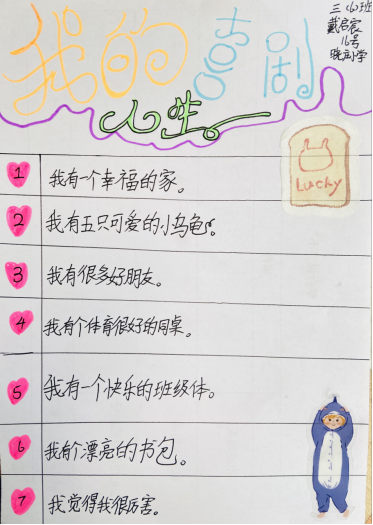 我的喜剧
人生。
三(6)班
戴启宸
16号
晓店小学
Lucky
1 我有一个幸福的家。
2 我有五只可爱的小乌龟。
3 我有很多好朋友。
4 我有个体育很好的同桌。
5 我有一个快乐的班级体。
6 我有个漂亮的书包。
7 我觉得我很厉害。